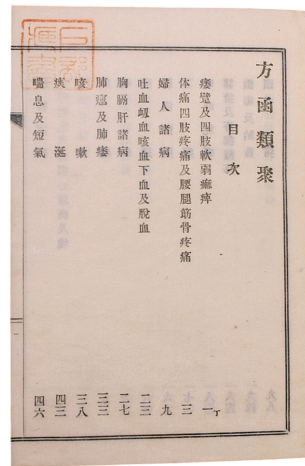 方函類聚
目次
痿躄及四肢軟弱痲痺 一
体痛四肢疼痛及腰腿筋骨疼痛 三
婦人諸病 九
吐血衂血咳血下血及脫血 二三
胸膈肝諸病 二七
肺癰及肺痿 三三
咳嗽 三八
痰涎 四三
喘息及短氣 四六